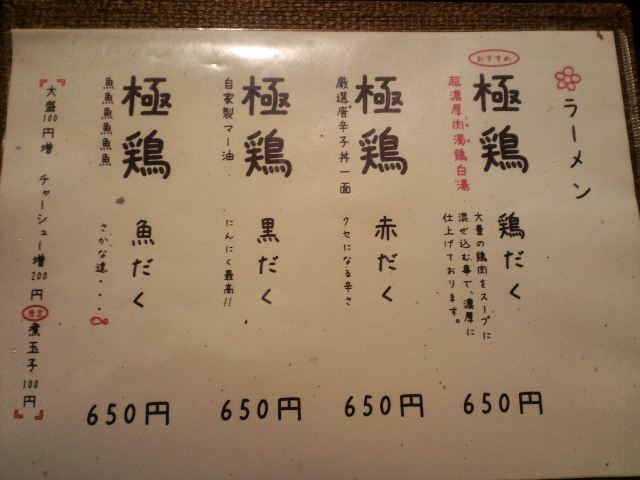 ラーメン
おすすめ
極鶏
超濃厚肉濁鶏白湯
鶏だく
大量の鶏肉をスープに
混ぜ込む事で、濃厚に
仕上げております。
650円
極鶏
厳選唐辛子丼一面
赤だく
クセになる辛さ
650円
極鶏
自家製マー油
黒だく
にんにく最高!!
650円
極鶏
魚魚魚魚魚魚
魚だく
さかな達・・・∞
650円
大盛100円増 チャーシュー増200円 限定 煮玉子100円